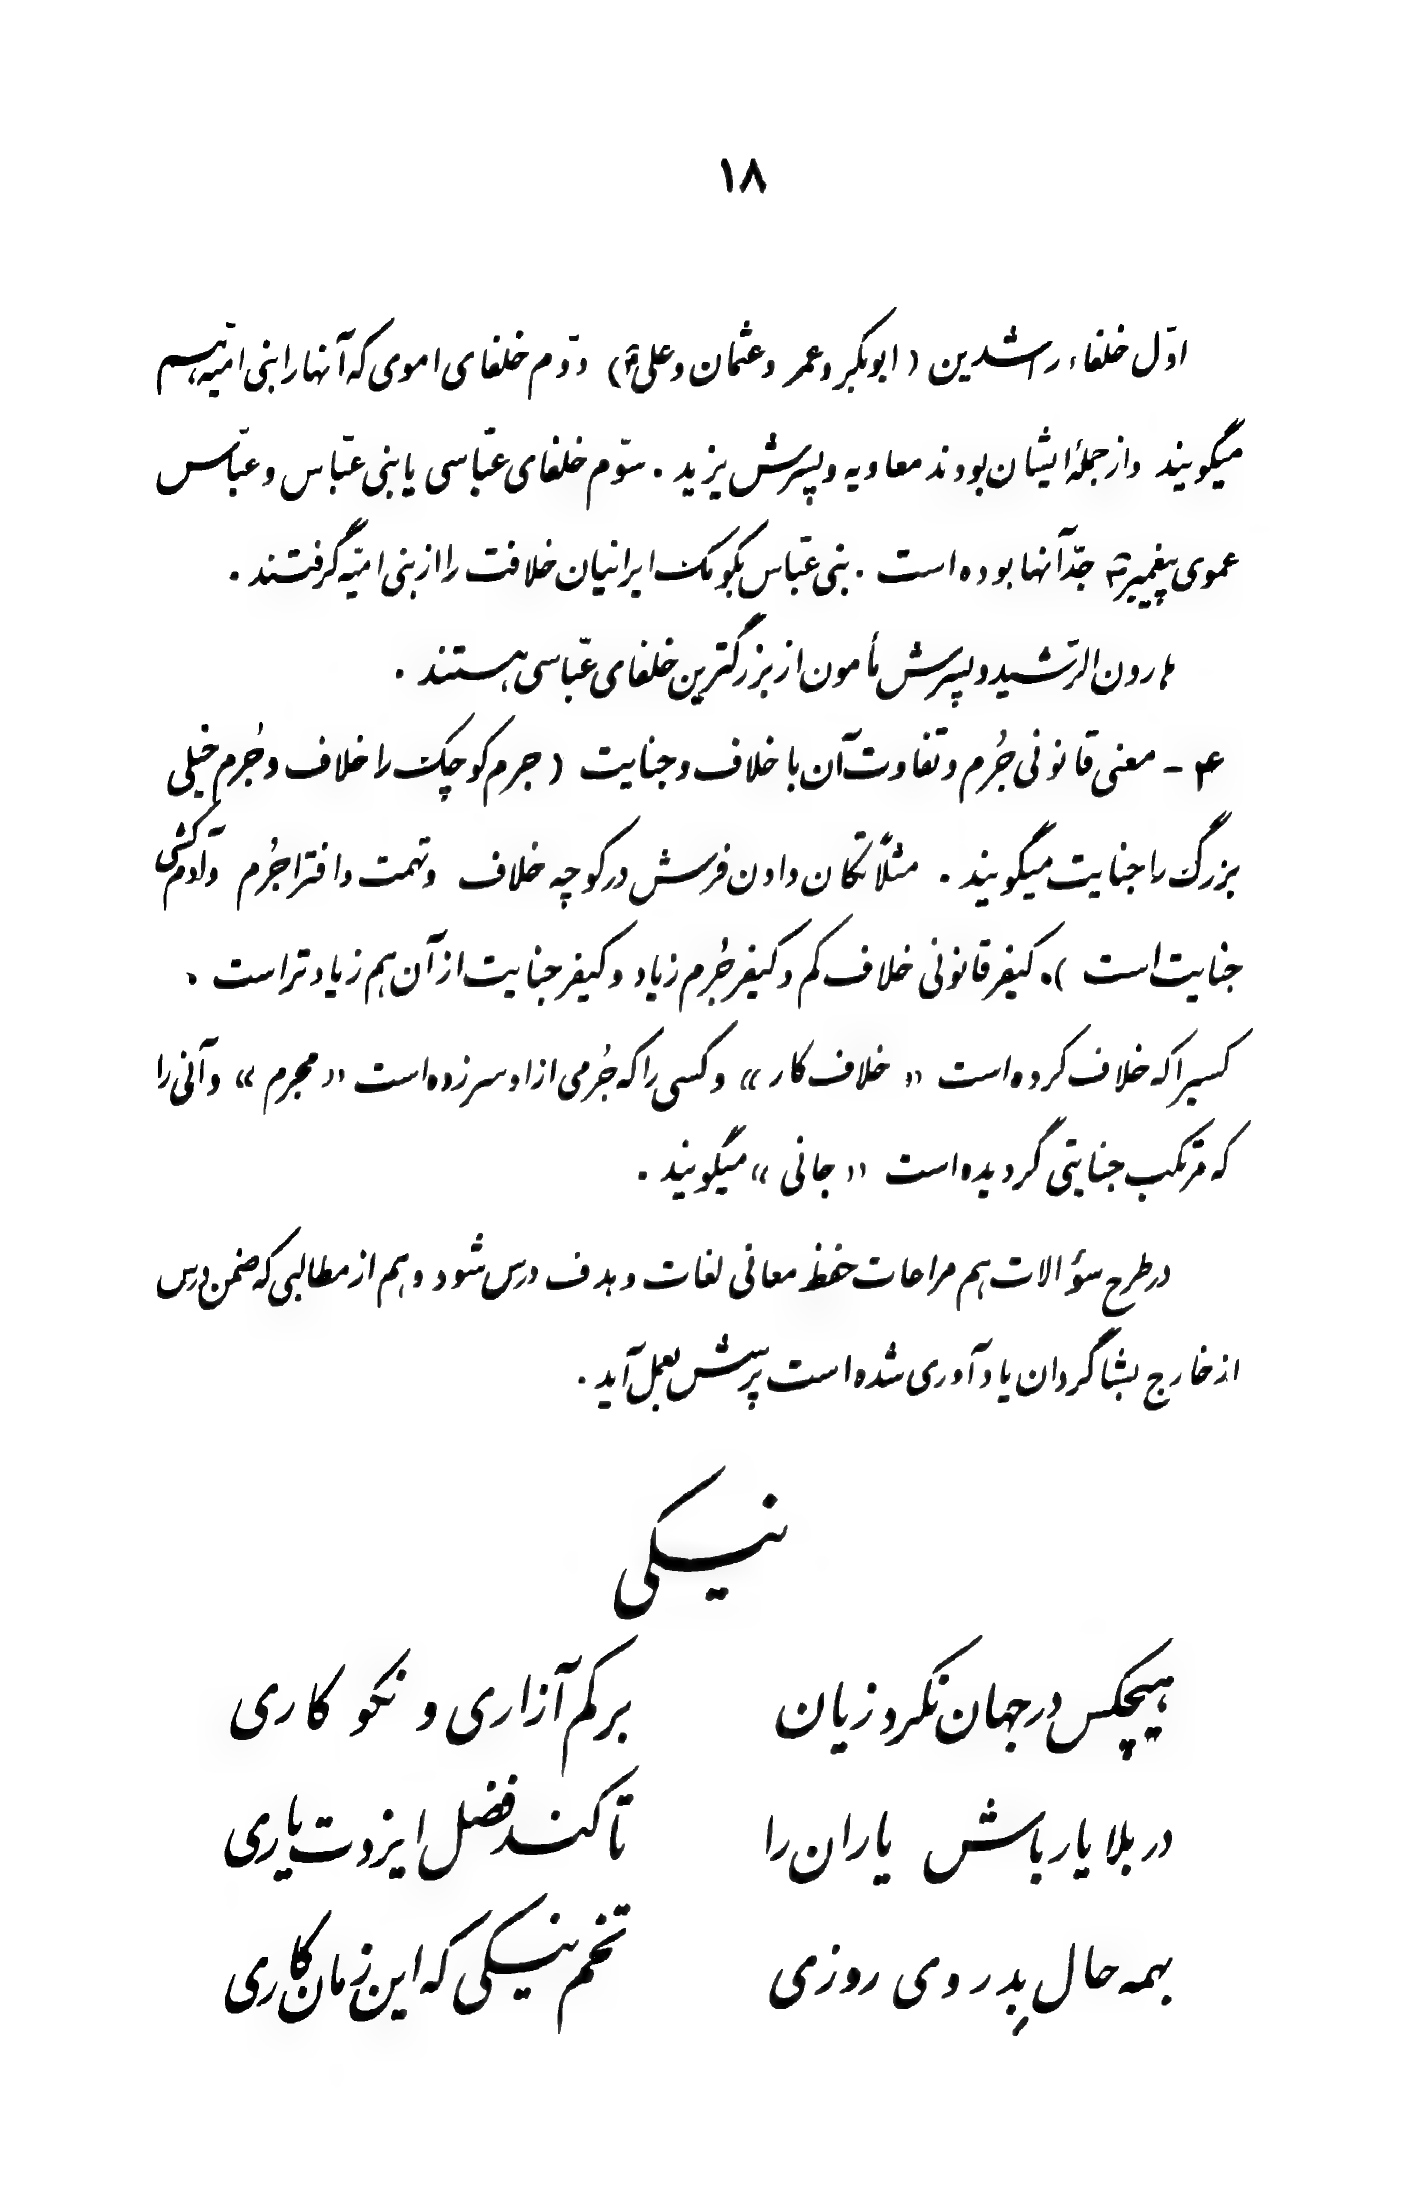 ۱۸
اوّل خلفاء راشدین ( ابوبکر و عمر و عثمان و علی ع ) دوّم خلفای اموی که آنها را بنی امیّه هم
میگویند و از جملهٔ ایشان بودند معاویه و پسرش یزید . سوّم خلفای عبّاسی یا بنی عبّاس و عبّاس
عموی پیغمبر ص جدّ آنها بوده است . بنی عبّاس بکومک ایرانیان خلافت را از بنی امیّه گرفتند .
هارون الرّشید و پسرش مأمون از بزرگترین خلفای عبّاسی هستند .
۴ - معنی قانونی جُرم و تفاوت آن با خلاف و جنایت ( جرم کوچک را خلاف و جُرم خیلی
بزرگ را جنایت میگویند . مثلاً تکان دادن فرش در کوچه خلاف و تهمت و افترا جُرم و آدم کشی
جنایت است ). کیفر قانونی خلاف کم و کیفر جُرم زیاد و کیفر جنایت از آن هم زیادتر است .
کسیرا که خلاف کرده است « خلاف کار » و کسی را که جُرمی از او سرزده است « مجرم » و آنی را
که مرتکب جنایتی گردیده است « جانی » میگویند .
در طرح سؤالات هم مراعات حفظ معانی لغات و هدف درس شود و هم از مطالبی که ضمن درس
از خارج بشاگردان یادآوری شده است پرسش بعمل آید .
نیکی
هیچکس در جهان نکرد زیان برکم آزاری و نکوکاری
در بلا یار باش یاران را تا کند فضل ایزدت یاری
بهمه حال بِدرَوی روزی تخم نیکی که این زمان کاری